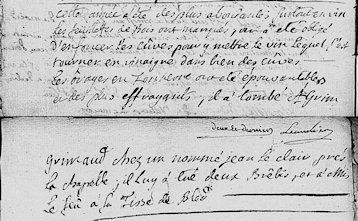 Cette année a été des plus abondantes surtout en vin
les feuillettes de bois ont manqués, l'on a été obligé
d'enfoncer les cuves pour y mettre le vin lequel s'est
tourner en vinaigre dans bien des cuves
les orages en ont été épouvantables
et des plus effrayants, il a tombé St Grim
deux et dernier
Grimaud chez un nommé jean le clair près
la chapelle, il luy a tué deux Brebis, et a mis
le feu a la